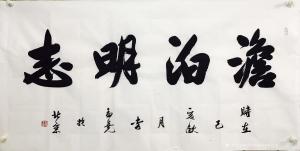 澹泊明志
時在
己亥秋
月李
於北京